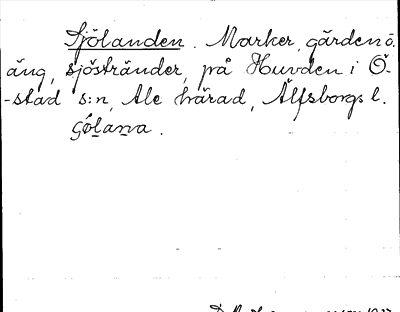 Sjölanden. Marker, gärden o.
äng, sjöstränder, på Huvden i Ö-
-stad s:n, Ale härad, Älfsborgs l.
gôlana.